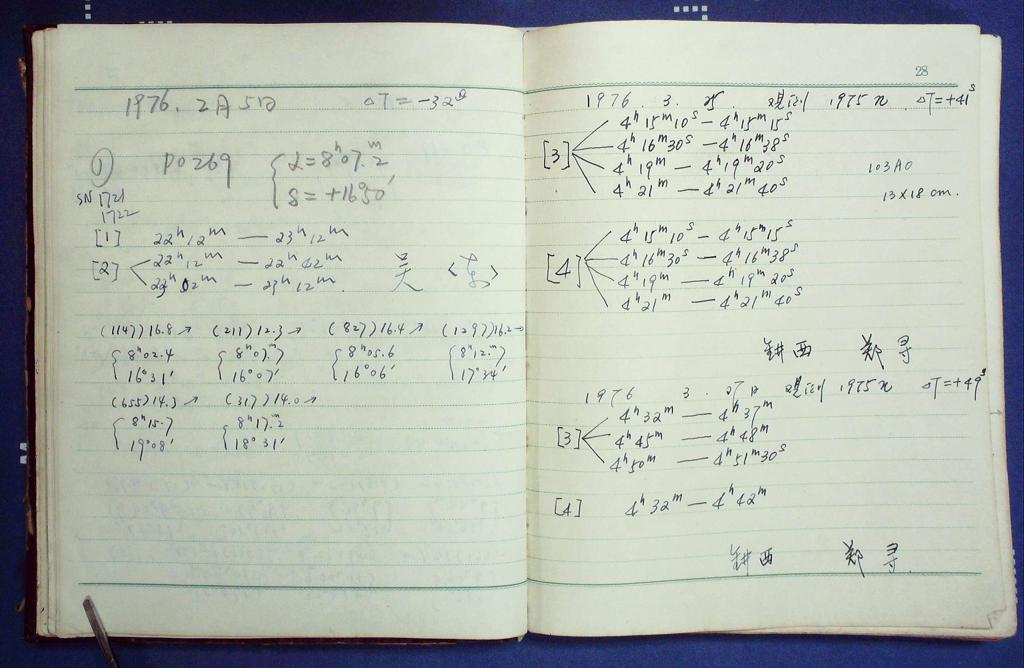 1976. 2月5日 ΔT = -32ˢ
① PO269 { α = 8ʰ07.ᵐ2
δ = +16°50′
SN 1721
1722
[1] 22ʰ12ᵐ — 23ʰ12ᵐ
[2] 22ʰ12ᵐ — 22ʰ42ᵐ
— 23ʰ12ᵐ.
吴 <东>
(1147)16.8↗ (211)12.3↗ (827)16.4↗ (1297)16.2→
{ 8ʰ02.4 { 8ʰ07.ᵐ7 { 8ʰ05.6 { 8ʰ12.ᵐ7
16°31′ 16°07′ 16°06′ 17°34′
(655)14.3↗ (317)14.0↗
{ 8ʰ15.7 { 8ʰ17.ᵐ2
19°08′ 18°31′
28
1976. 3. 25. 观测 1975n ΔT=+41ˢ
[3] 4ʰ15ᵐ10ˢ — 4ʰ15ᵐ15ˢ
4ʰ16ᵐ30ˢ — 4ʰ16ᵐ38ˢ
4ʰ19ᵐ — 4ʰ19ᵐ20ˢ
4ʰ21ᵐ — 4ʰ21ᵐ40ˢ
103AO
13×18 cm.
[4] 4ʰ15ᵐ10ˢ — 4ʰ15ᵐ15ˢ
4ʰ16ᵐ30ˢ — 4ʰ16ᵐ38ˢ
4ʰ19ᵐ — 4ʰ19ᵐ20ˢ
4ʰ21ᵐ — 4ʰ21ᵐ40ˢ
西 郑 寻
1976 3. 27日 观测 1975n ΔT=+49ˢ
[3] 4ʰ32ᵐ — 4ʰ37ᵐ
4ʰ45ᵐ — 4ʰ48ᵐ
4ʰ50ᵐ — 4ʰ51ᵐ30ˢ
[4] 4ʰ32ᵐ — 4ʰ42ᵐ
西 郑 寻.